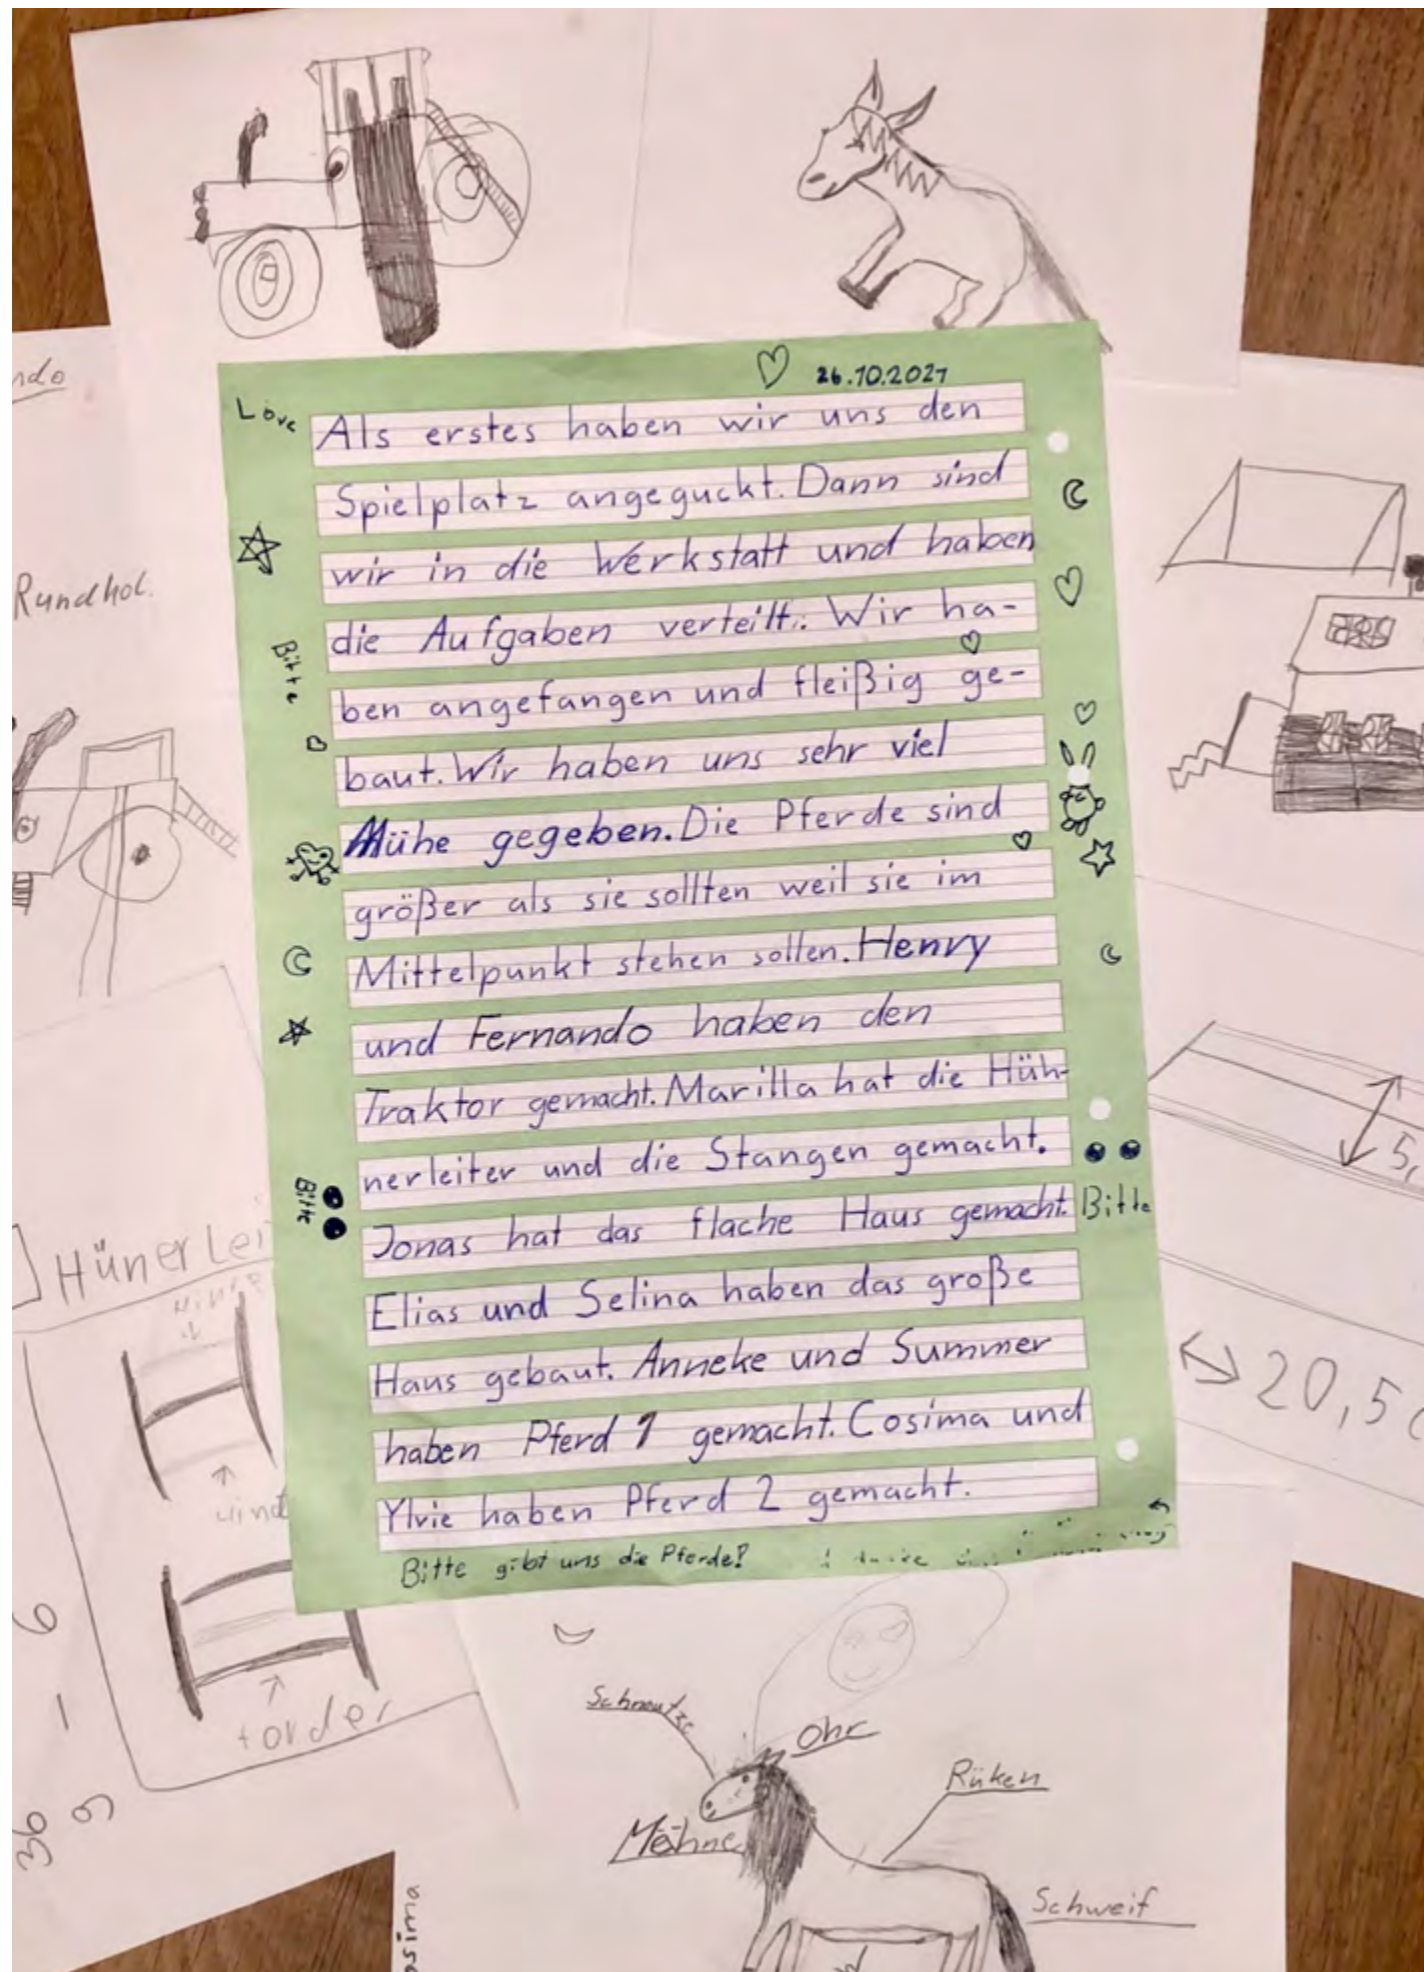 26.10.2021
Love
Als erstes haben wir uns den
Spielplatz angeguckt. Dann sind
wir in die Werkstatt und haben
die Aufgaben verteilt. Wir ha-
ben angefangen und fleißig ge-
baut. Wir haben uns sehr viel
Mühe gegeben. Die Pferde sind
größer als sie sollten weil sie im
Mittelpunkt stehen sollen. Henry
und Fernando haben den
Traktor gemacht. Marilla hat die Hüh-
nerleiter und die Stangen gemacht.
Jonas hat das flache Haus gemacht.
Elias und Selina haben das große
Haus gebaut. Anneke und Summer
haben Pferd 1 gemacht. Cosima und
Ylvie haben Pferd 2 gemacht.
Bitte gibt uns die Pferde!
Bitte
Bitte
Bitte
Rundhol.
Hünerlei
36 - 6
9
5,
20,5
Schnautze
Ohr
Rüken
Mähne
Schweif
osima